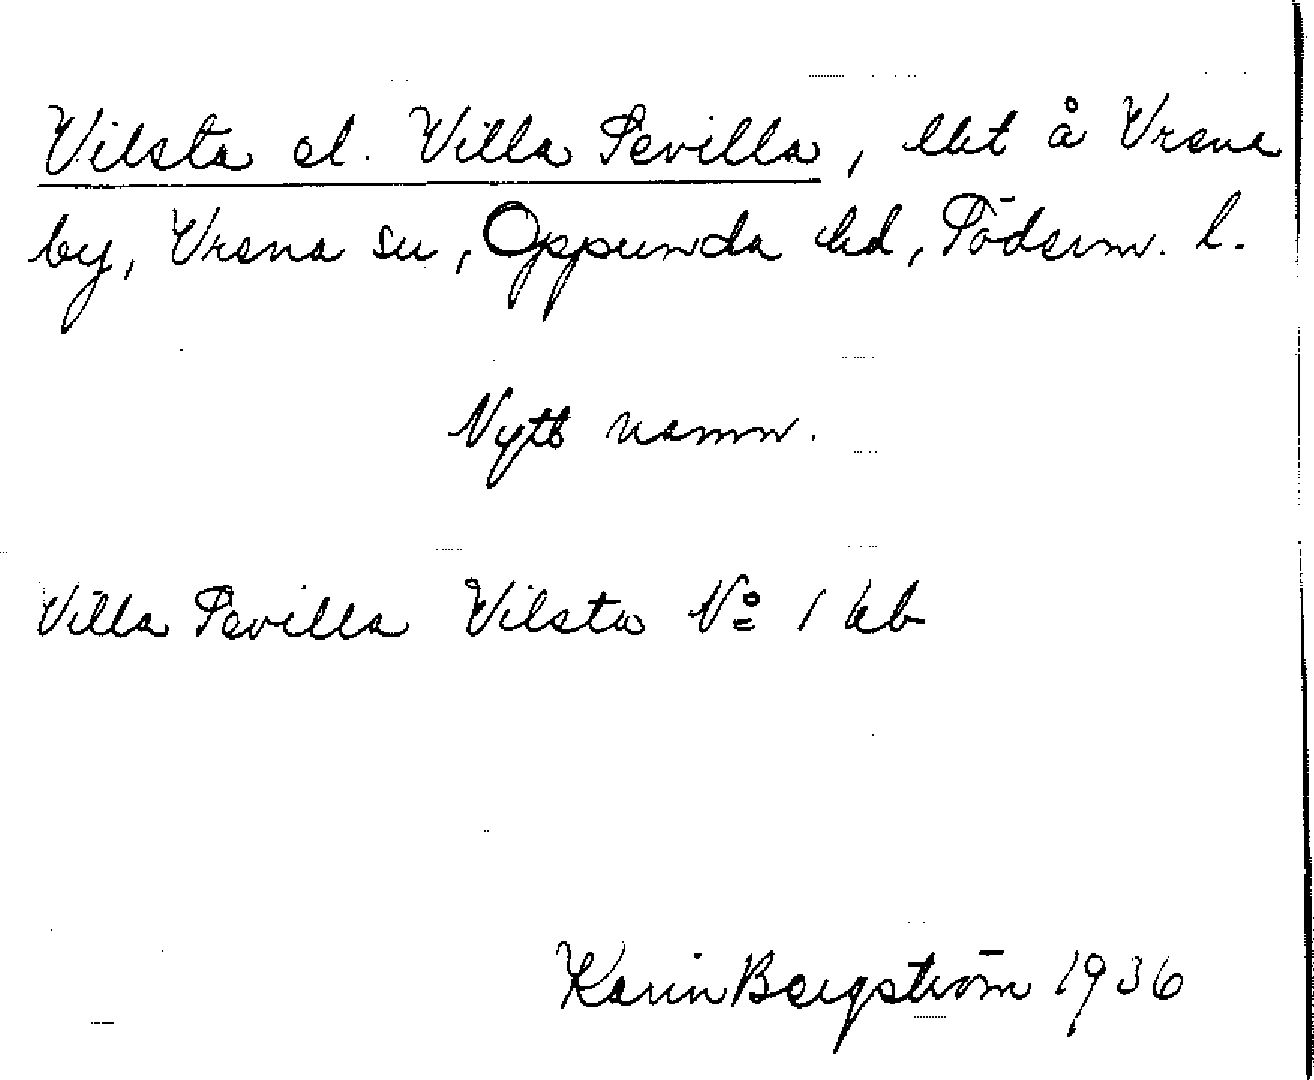 Vilsta el. Villa Sevilla, lht å Vrena
by, Vrena sn, Oppunda hd, Söderm. l.
Nytt namn.
Villa Sevilla Vilsta No 1 kb
Karin Bergström 1936